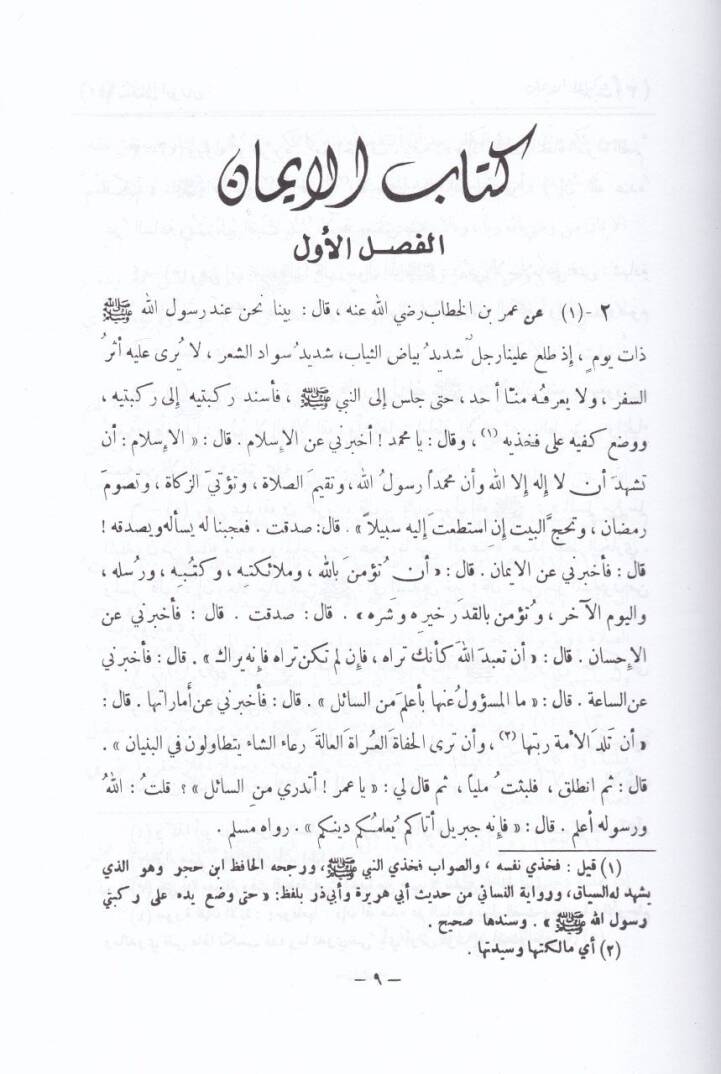 كتاب الإيمان
الفصل الأول
٢ -(١) عن عمر بن الخطاب رضي الله عنه ، قال : بينا نحن عند رسول الله ﷺ
ذات يومٍ ، إذ طلع علينا رجلٌ شديدُ بياض الثياب، شديدُ سواد الشعر ، لا يُرى عليه أثرُ
السفر ، ولا يعرفُه منّا أحد، حتى جلس إلى النبي ﷺ ، فأسند ركبتيه إلى ركبتيه ،
ووضع كفيه على فخذيه (١) ، وقال : يا محمد ! أخبرني عن الإسلام . قال : « الإسلام : أن
تشهدَ أن لا إله إلا الله وأن محمداً رسولُ الله ، وتقيمَ الصلاة ، وتؤتيَ الزكاة ، وتصومَ
رمضان ، وتحجَّ البيت إن استطعت إليه سبيلاً » . قال: صدقت . فعجبنا له يسأله ويصدقه !
قال : فأخبرني عن الإيمان . قال : « أن تُؤمنَ بالله ، وملائكته ، وكتُبِه ، ورُسله ،
واليوم الآخر ، وتُؤمن بالقدَر خيرِه وشَره » . قال : صدقت . قال : فأخبرني عن
الإحسان . قال : « أن تعبدَ اللهَ كأنك تراه ، فإن لم تكن تراه فإنه يراك » . قال : فأخبرني
عن الساعة . قال : « ما المسؤولُ عنها بأعلمَ من السائل » . قال : فأخبرني عن أماراتها . قال :
« أن تلدَ الأمة ربتها (٢) ، وأن ترى الحفاةَ العُراةَ العالةَ رعاء الشاء يتطاولون في البنيان » .
قال : ثم انطلق ، فلبثتُ ملياً ، ثم قال لي : « يا عمر ! أتدري منِ السائل » ؟ قلتُ : اللهُ
ورسوله أعلم . قال : « فإنه جبريل أتاكم يُعلمُكم دينكم » . رواه مسلم .
(١) قيل : فخذي نفسه ، والصواب فخذي النبي ﷺ ، ورجحه الحافظ ابن حجر وهو الذي
يشهد له السياق ، ورواية النسائي من حديث أبي هريرة وأبي ذر بلفظ: « حتى وضع يده على ركبتي
رسول الله ﷺ » . وسندها صحيح .
(٢) أي مالكتها وسيدتها .
– ٩ –